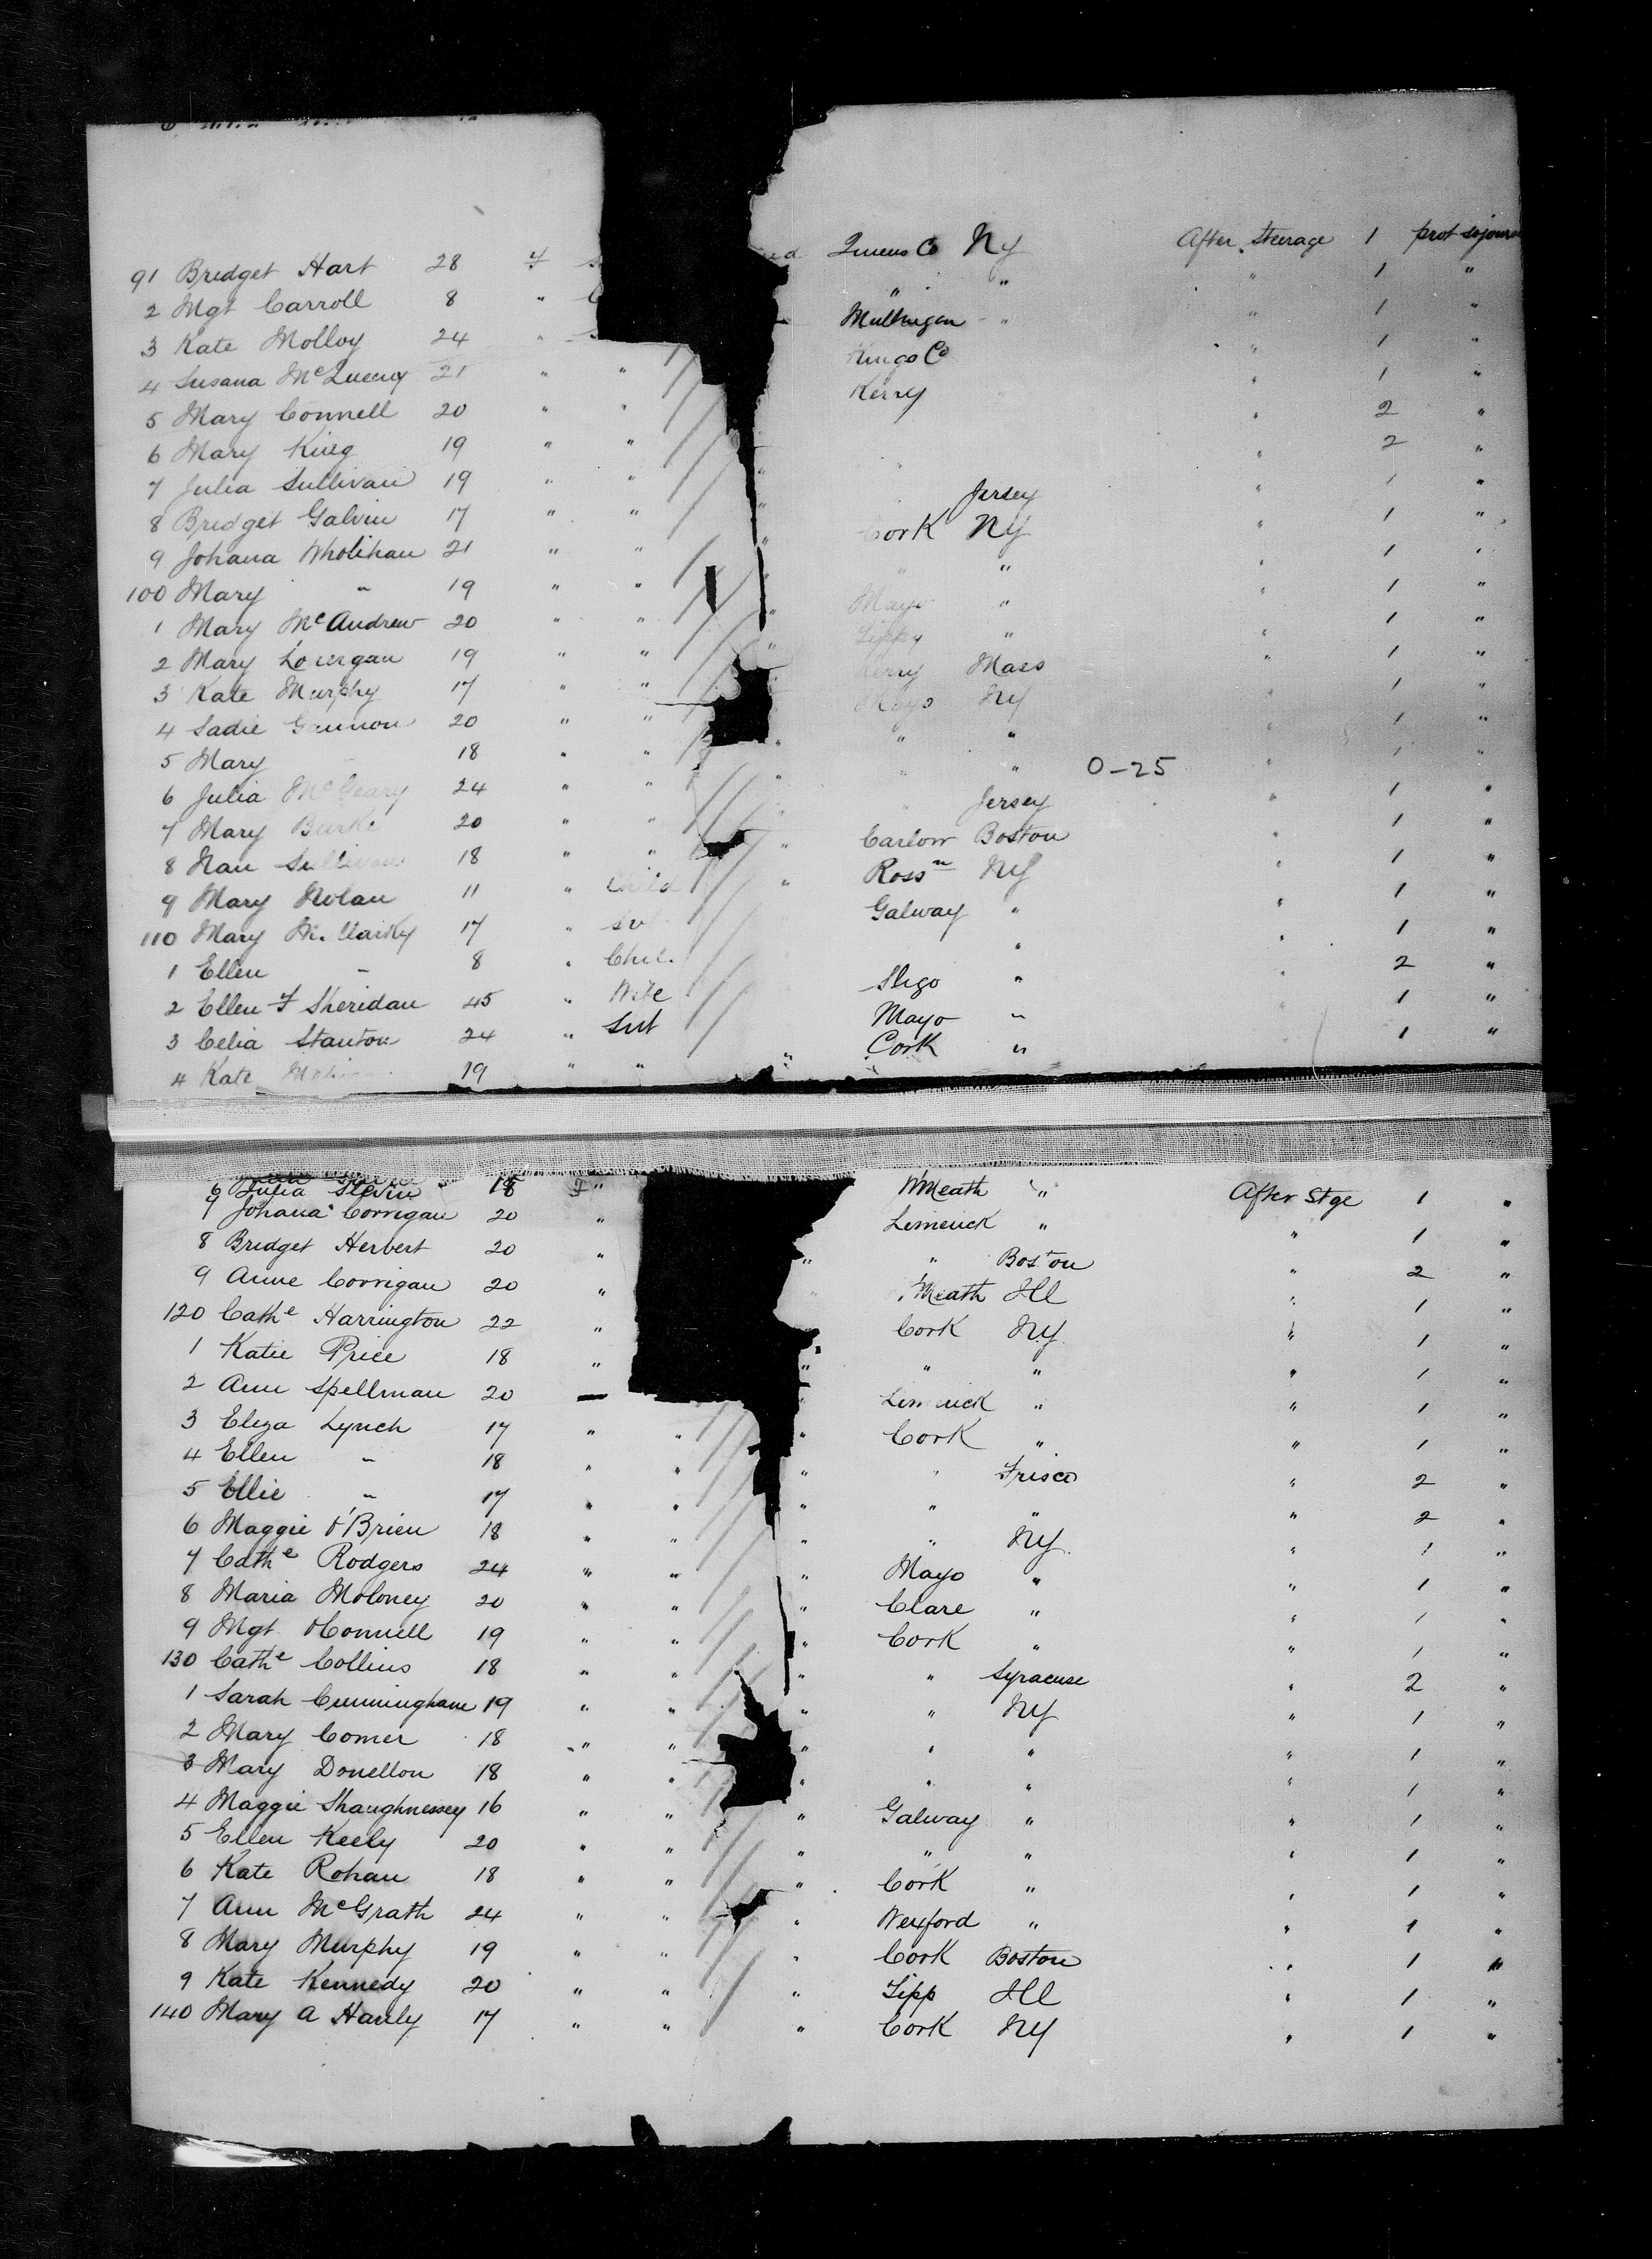 91 Bridget Hart 28 F Queens Co Ny After Steerage 1 prot sojourn
2 Mgt Carroll 8 " " " " 1 "
3 Kate Molloy 24 " Mullingen " " 1 "
4 Susana 21 " " Kings Co " 1 "
5 Mary Connell 20 " " Kerry " 1 "
6 Mary King 19 " " " 2 "
7 Julia Sullivan 19 " " " " " 2 "
8 Bridget Galvin 17 " " " " Jersey " 1 "
9 Johana Wholihan 21 " " " Cork Ny " 1 "
100 Mary " 19 " " " " " " 1 "
1 Mary McAndrew 20 " " " Mayo " " 1 "
2 Mary Lonergan 19 " " " Tippy " " 1 "
3 Kate Murphy 17 " " " Kerry Mass " 1 "
4 Sadie Gannon 20 " " " Mayo Ny " 1 "
5 Mary 18 " " " " " " 1 "
6 Julia McGeary 24 " " " " " 0-25 " 1 "
7 Mary Burke 20 " " " " Jersey " 1 "
8 Nan Sullivan 18 " " " Carlow Boston " 1 "
9 Mary Nolan 11 " Child " Rossn Ny " 1 "
110 Mary 17 " Svt Galway " " 1 "
1 Ellen " 8 " Chil. " " 1 "
2 Ellen F Sheridan 45 " Wife Sligo " " 2 "
3 Celia Stanton 24 " Svt Mayo " " 1 "
4 Kate 19 " " " Cork " 1 "
6 Julia Slevin 18 F " WMeath " After Stge 1 "
7 Johana Corrigan 20 " Limerick " " 1 "
8 Bridget Herbert 20 " " " Boston " 2 "
9 Anne Corrigan 20 " " Meath Ill " 1 "
120 Cathe Harrington 22 " Cork Ny " 1 "
1 Katie Price 18 " " " " " 1 "
2 Ann Spellman 20 — Limerick " " 1 "
3 Eliza Lynch 17 " " " Cork " " 1 "
4 Ellen " 18 " " " " Frisco " 2 "
5 Ellie " 17 " " " " " " 2 "
6 Maggie O'Brien 18 " " " " Ny " 1 "
7 Cathe Rodgers 24 " " " Mayo " " 1 "
8 Maria Moloney 20 " " " Clare " " 1 "
9 Mgt OConnell 19 " " " Cork " " 1 "
130 Cathe Collins 18 " " " " Syracuse " 2 "
1 Sarah Cunninghane 19 " " " " Ny " 1 "
2 Mary Comer 18 " " " " " " 1 "
3 Mary Donellon 18 " " " " " " 1 "
4 Maggie Shaughnessey 16 " " " Galway " " 1 "
5 Ellen Keely 20 " " " " " " 1 "
6 Kate Rohan 18 " " " Cork " " 1 "
7 Ann McGrath 24 " " " Wexford " " 1 "
8 Mary Murphy 19 " " " Cork Boston " 1 "
9 Kate Kennedy 20 " " " Tipp Ill " 1 "
140 Mary A Hanly 17 " " " Cork Ny " 1 "